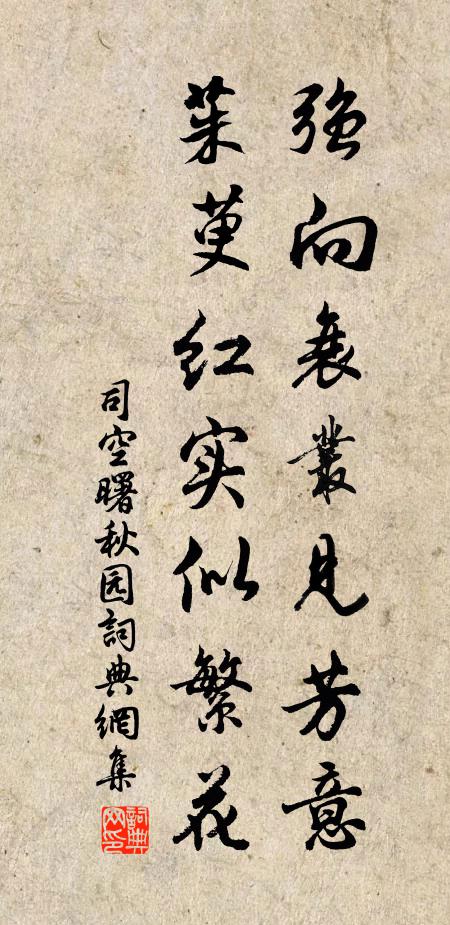 强向衰叢见芳意
茱萸红实似繁花
司空曙秋园詞典網集
詞典
网印